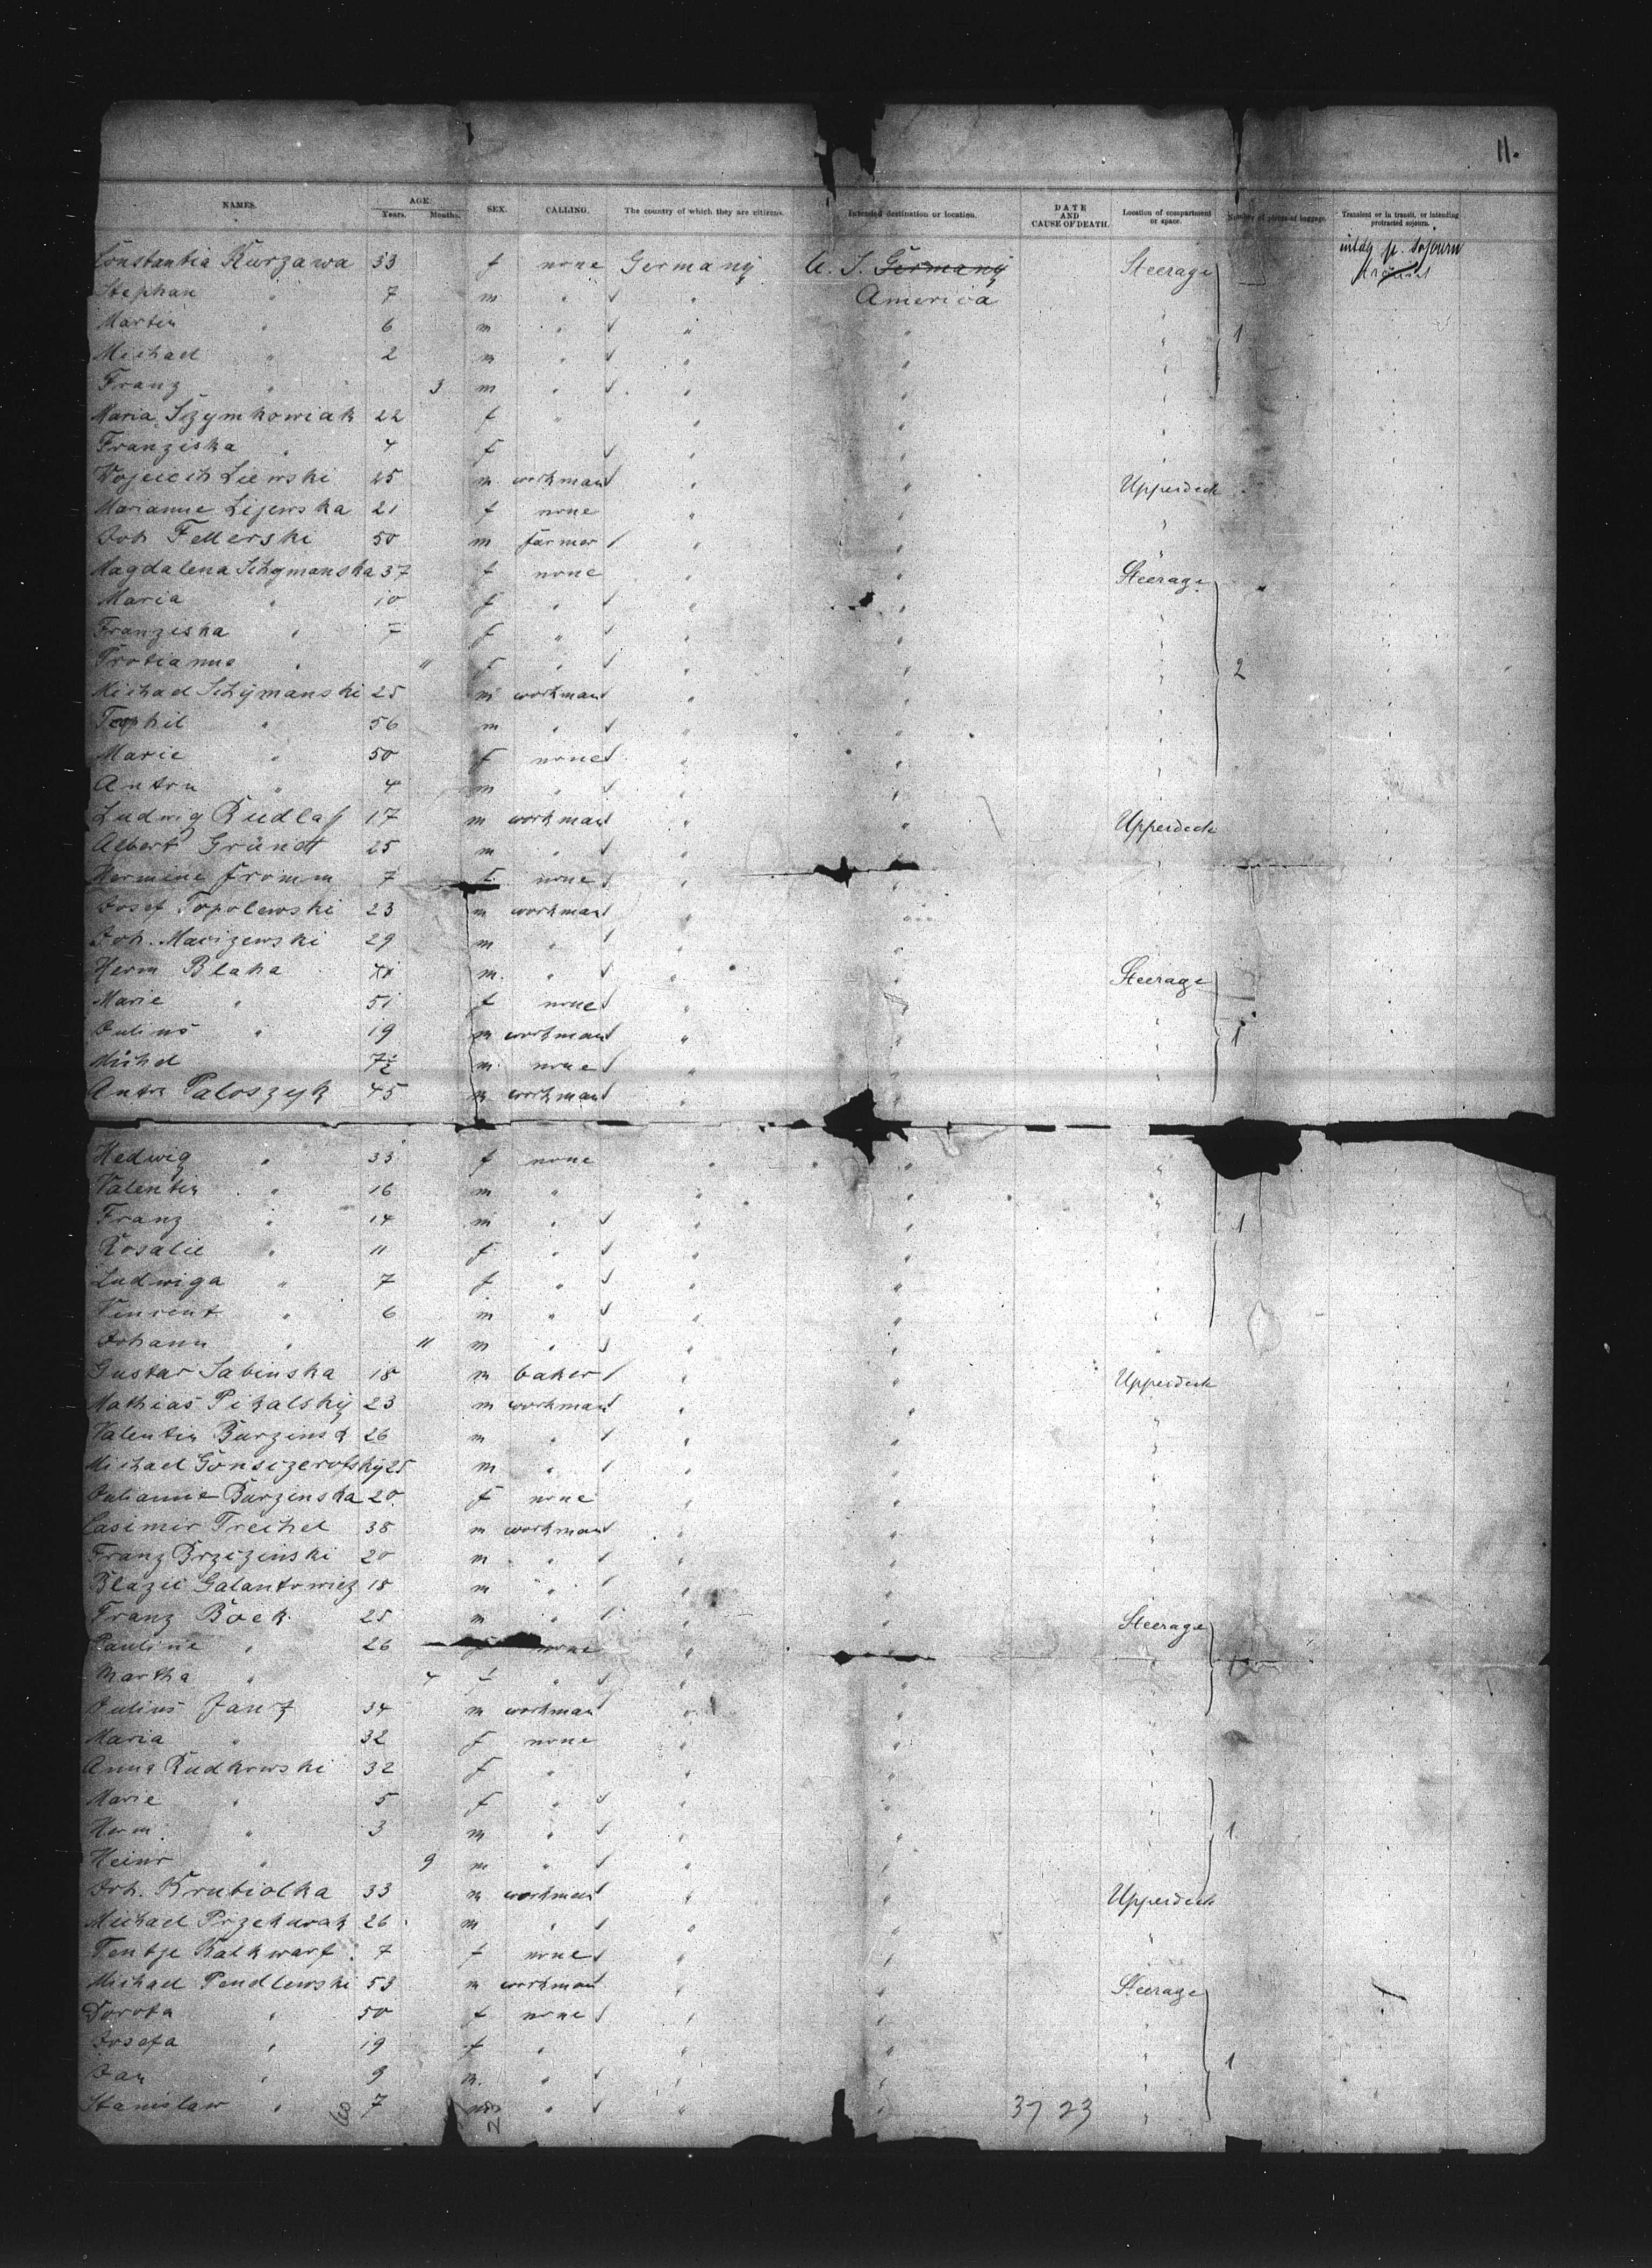 11.
NAMES. AGE. Years. Months. SEX. CALLING. The country of which they are citizens. Intended destination or location. DATE AND CAUSE OF DEATH. Location of compartment or space. Number of pieces of baggage. Transient or in transit, or intending protracted sojourn.
Constantia Kurzawa 33 f none Germany U. S. Germany Steerage intdg p. sojourn
Stephan " 7 m " " America "
Martin " 6 m " " " " 1
Michael " 2 m " " " "
Franz " 3 m " " " "
Maria Szymkowiak 22 f " " " "
Franziska " 4 f " " "
Wojciech Liewski 25 m workman " " Upperdeck
Marianne Lijewska 21 f none " " "
Joh Fellerski 50 m farmer " "
Magdalena Schymanska 37 f none " " Steerage "
Maria " 10 f " " " "
Franziska " 7 f " " " "
" 11 f " " " " 2
Michael Schymanski 25 m workman " " "
Teophil " 56 m " " " "
Marie " 50 f none " " "
Anton " 4 m " " " "
Ludwig 17 m workman " " Upperdeck
Albert Gründt 25 m " " "
Hermine Fromm 7 f none " " "
Josef Topolewski 23 m workman " "
Joh. Macizewski 29 m " " "
Herm Blaha m " " " Steerage
Marie " 51 f none " " "
Julius " 19 m workman " " " 1
Michel 7½ m none " " "
Anton Paloszyk 45 m workman " "
Hedwig " 33 f none " " "
Valentin " 16 m " " " "
Franz " 14 m " " " " 1
Rosalie " 11 f " " " "
Ludwiga " 7 f " " " "
Vincent " 6 m " " " "
Johann " 11 m " " " "
Gustav Sabinska 18 m baker " " Upperdeck
Mathias Pikalsky 23 m workman " " "
Valentin Burzinsk 26 m " " " "
Michael Gonsizerofsky 25 m " " " "
Julianne Burzinska 20 f none " " "
Casimir Treichel 38 m workman " " "
Franz Brzezinski 20 m " " " "
Blazic Galantowicz 18 m " " " "
Franz Boek 25 m " " " Steerage
Pauline " 26 none " "
Martha " 4 f " " " "
Julius Jantz 34 m workman " " "
Maria " 32 f none " " "
Anna Rudkowski 32 f " " " "
Marie " 5 f " " " "
Herm " 3 m " " " " 1
Heinr " 9 m " " " "
Joh. Krubiolka 33 m workman " " Upperdeck
Michael Przekurak 26 m " " " "
Tentje Kalkwarf 7 f none " " "
Michael Pendlewski 53 m workman " " Steerage
Dorota " 50 f none " " "
Josefa " 19 f " " " "
Jan " 9 m " " " " 1
Stanislaw " 7 m " " " "
60 28 37 23